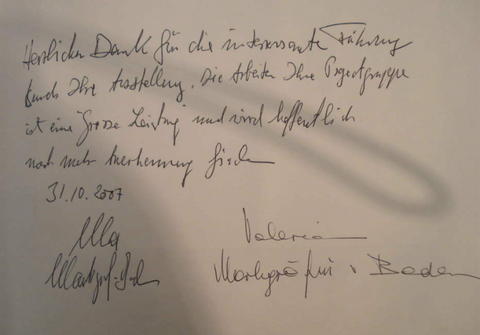 Herzlichen Dank für die interessante Führung
durch Ihre Ausstellung. Die Arbeiten Ihrer Projektgruppe
ist eine "Grosse Leistung" und wird hoffentlich
noch mehr Anerkennung finden
31.10.2007
Valerie
Markgräfin v Baden